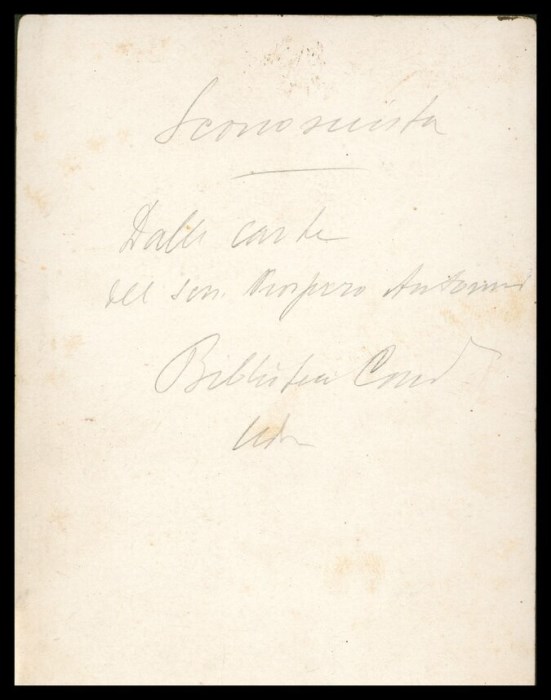 Sconosciuta
Dalle carte
del sen. Prospero Antonini
Biblioteca Com